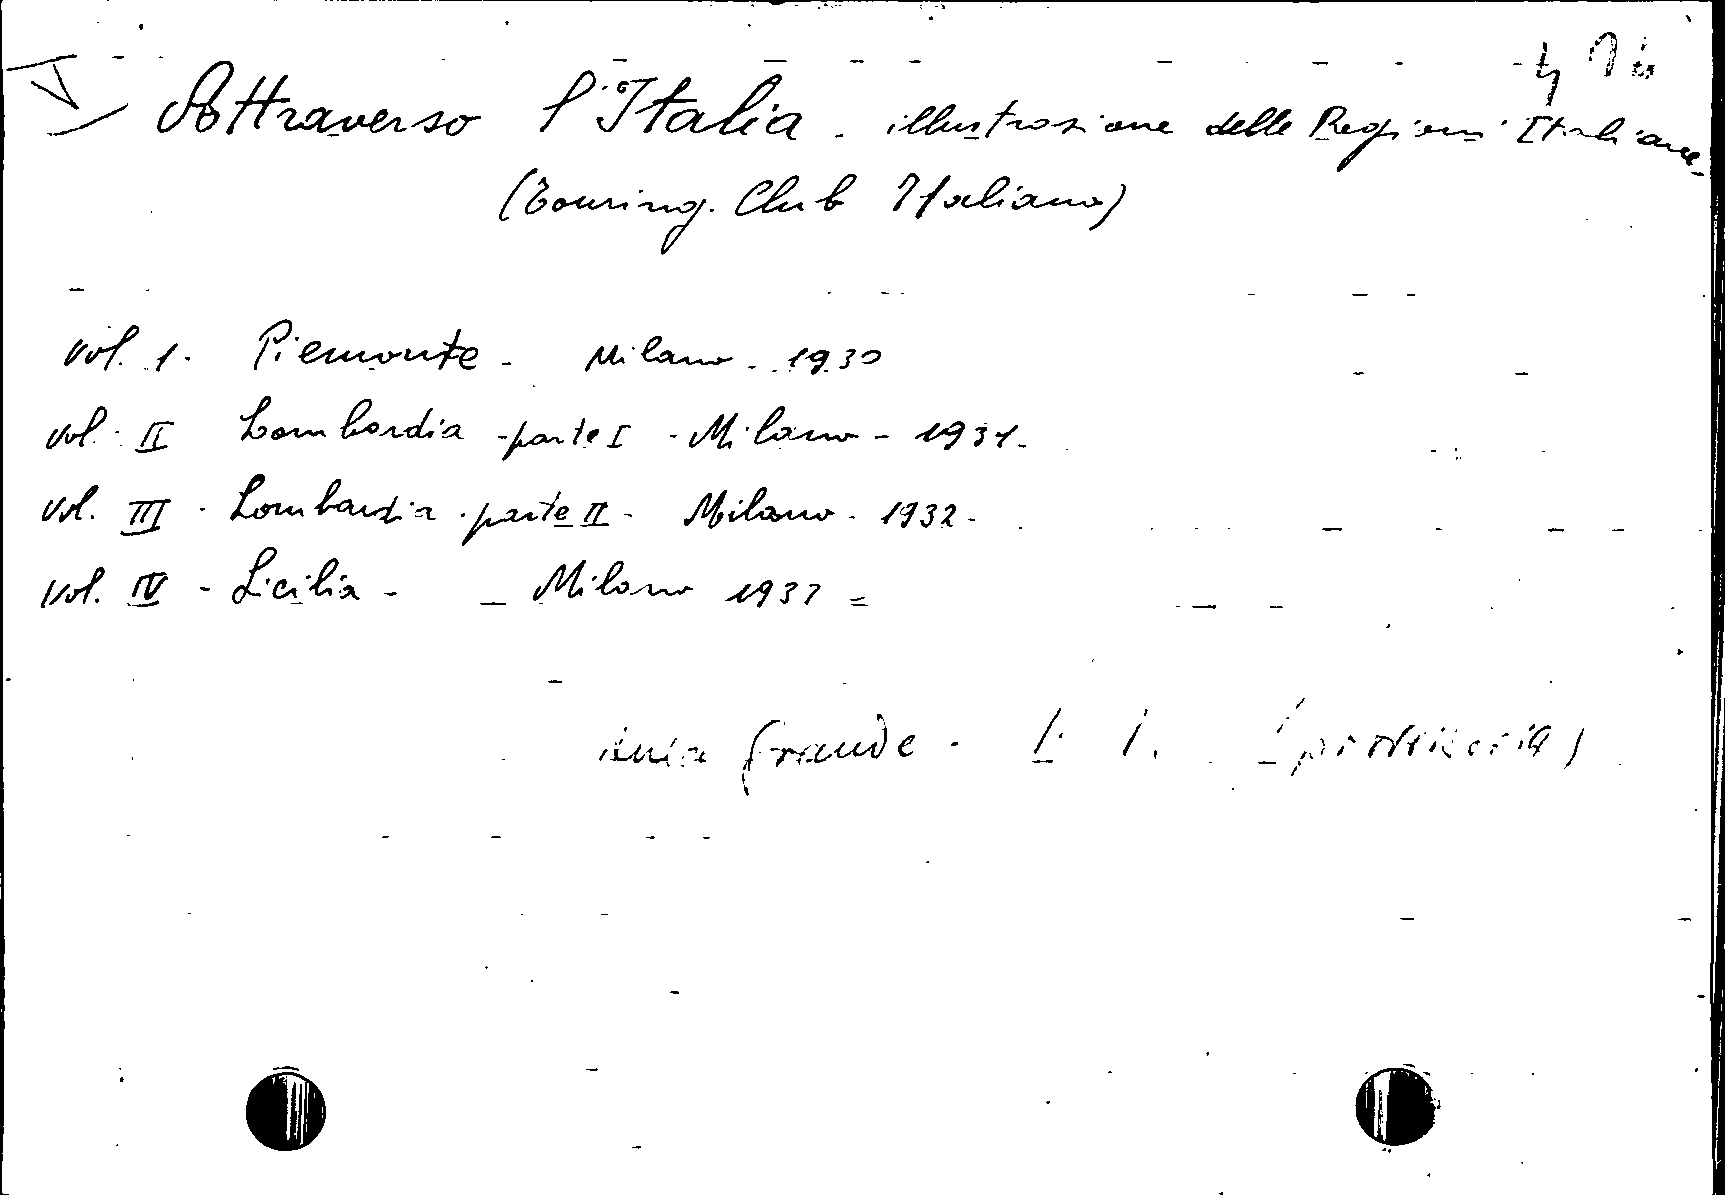 Attraverso l'Italia - illustrazione delle Regioni Italiane -
(Touring Club Italiano)
vol. 1. Piemonte - Milano - 1930
vol. II Lombardia - parte I - Milano - 1931 -
vol. III - Lombardia - parte II - Milano - 1932 -
vol. IV - Sicilia - Milano 1933 =
grande -